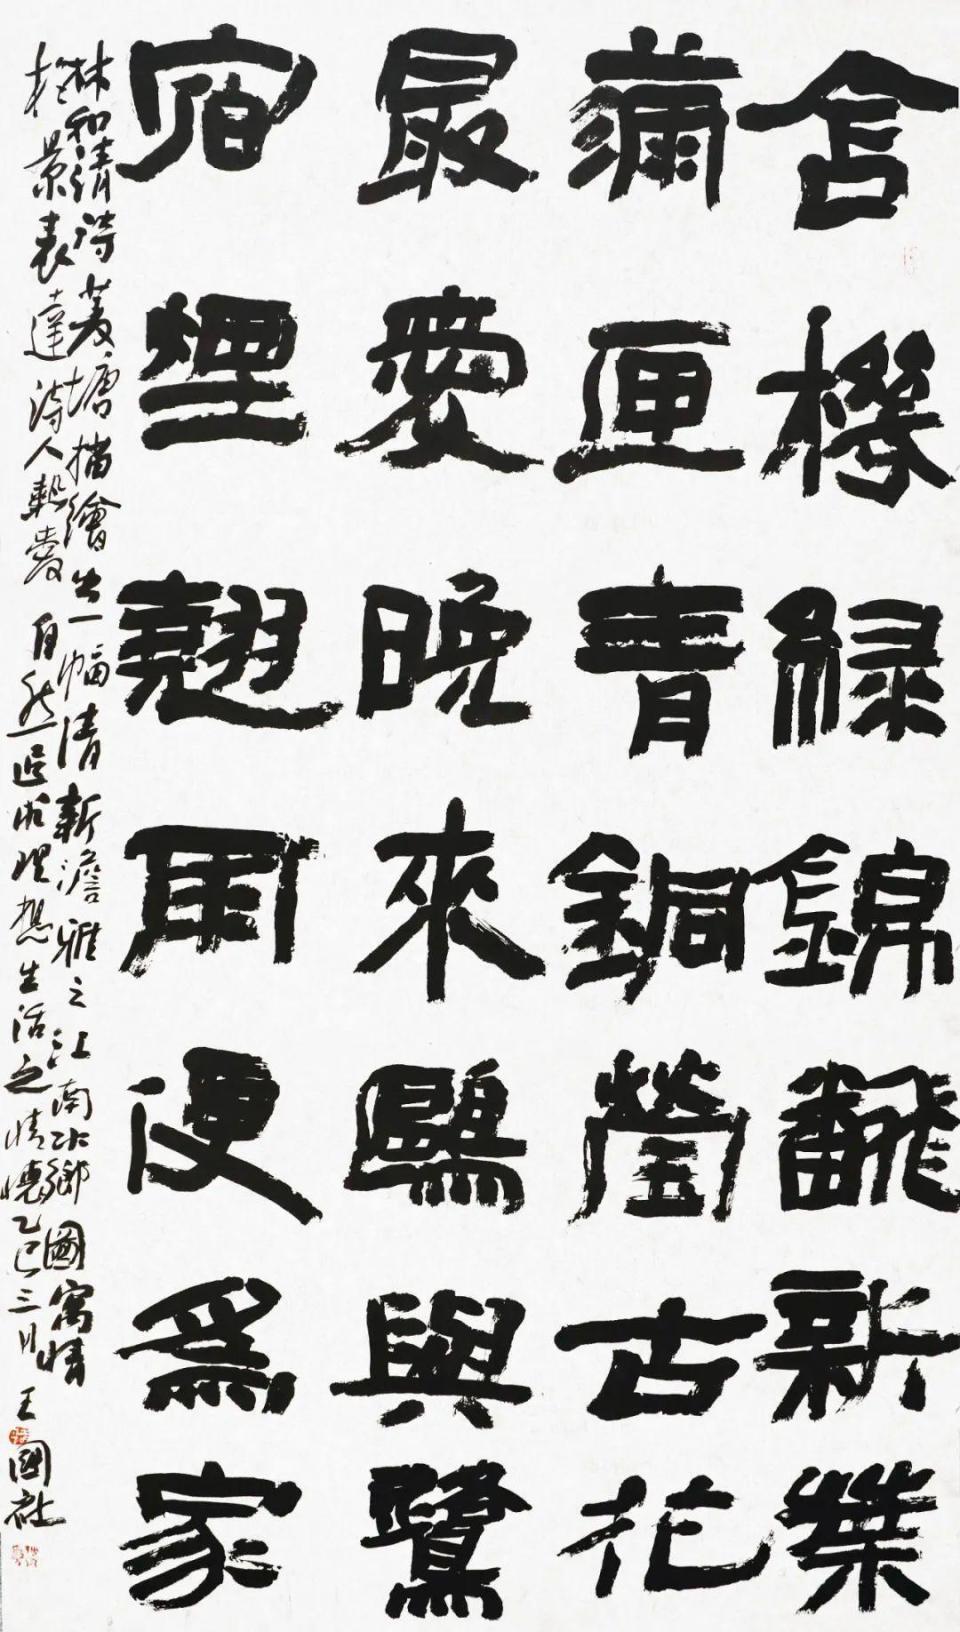 含機緑錦飜新葉
滿匣青銅瑩古花
最愛晚來鷗與鷺
宿煙翹雨便爲家
林和靖詩菱塘描繪出一幅清新澹雅之江南水鄉圖寓情
於景表達詩人熱愛自然追求理想生活之情懷乙巳三月王國社